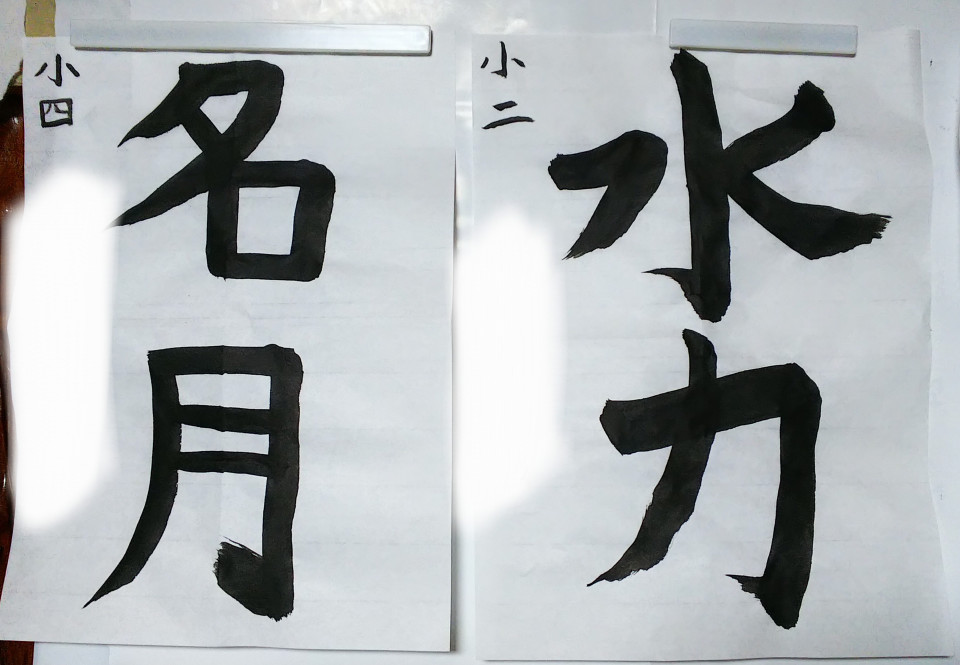 水力
小二
名月
小四